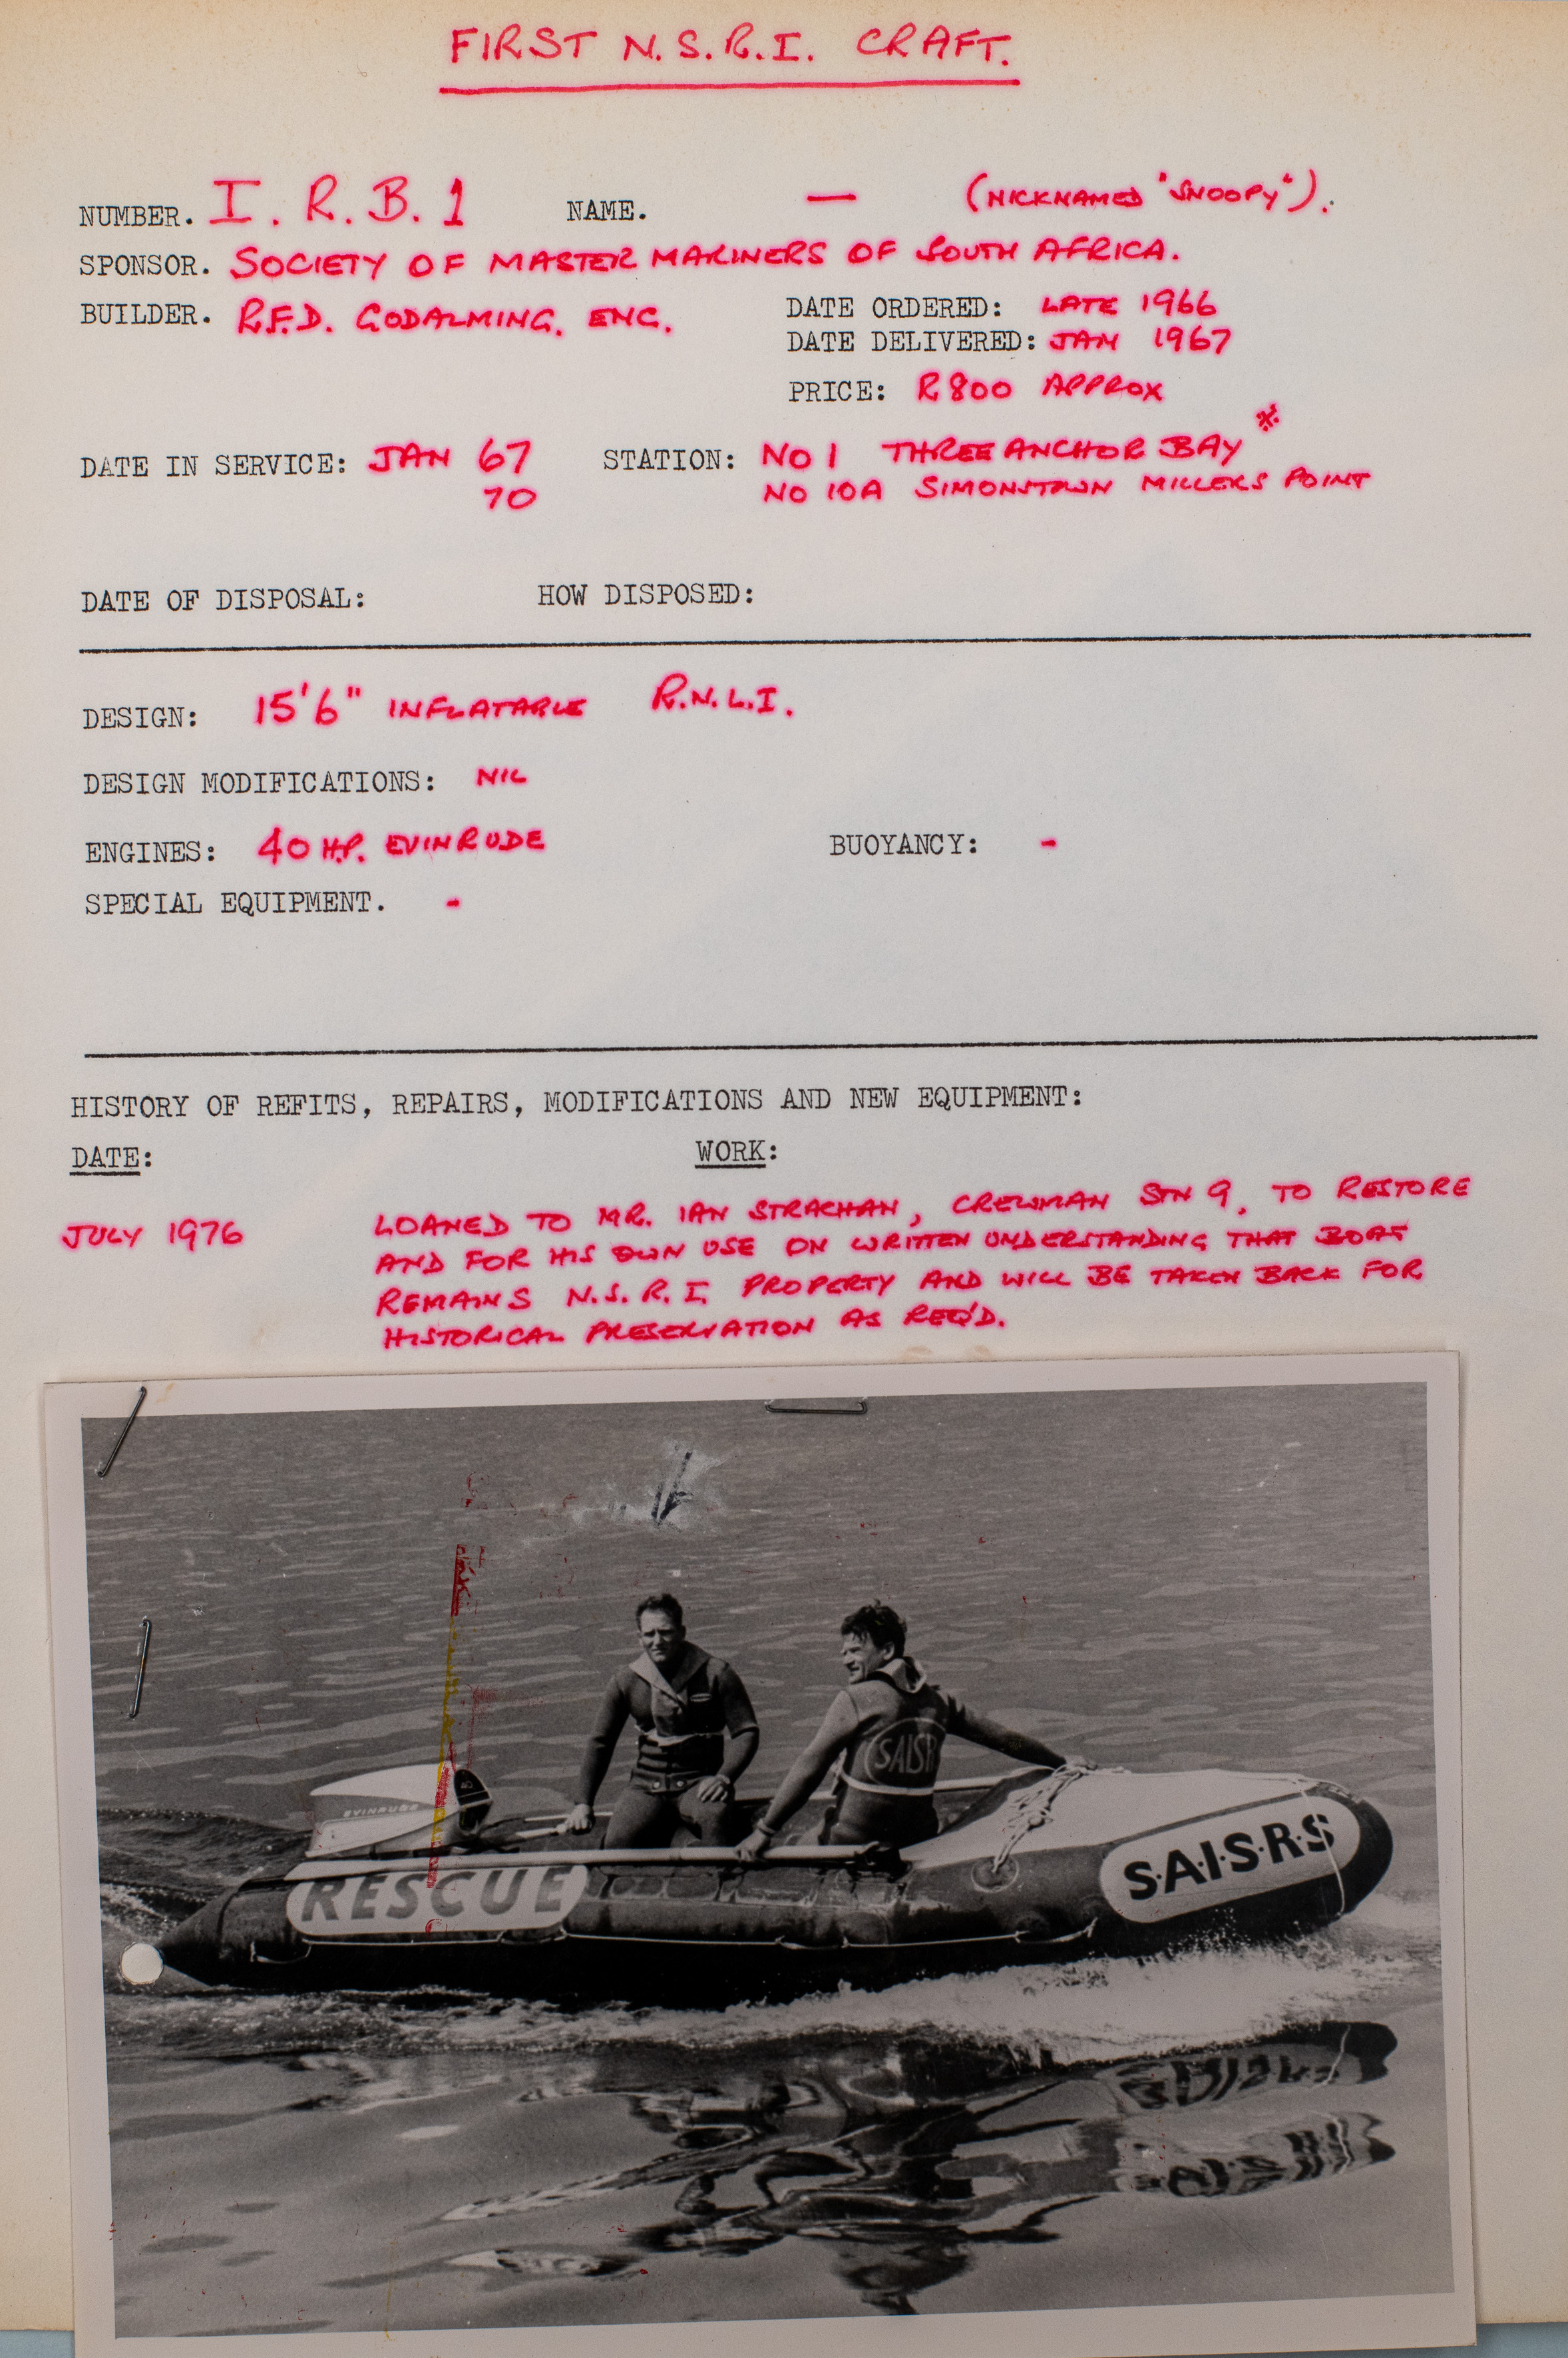 FIRST N.S.R.I. CRAFT.
NUMBER. I.R.B.1 NAME. — (NICKNAMED "SNOOPY").
SPONSOR. SOCIETY OF MASTER MARINERS OF SOUTH AFRICA.
BUILDER. R.F.D. GODALMING. ENG. DATE ORDERED: LATE 1966
DATE DELIVERED: JAN 1967
PRICE: R800 APPROX
DATE IN SERVICE: JAN 67 STATION: NO 1 THREE ANCHOR BAY *
70 NO 10A SIMONSTOWN MILLERS POINT
DATE OF DISPOSAL: HOW DISPOSED:
DESIGN: 15'6" INFLATABLE R.N.L.I.
DESIGN MODIFICATIONS: NIL
ENGINES: 40 H.P. EVINRUDE BUOYANCY: -
SPECIAL EQUIPMENT. -
HISTORY OF REFITS, REPAIRS, MODIFICATIONS AND NEW EQUIPMENT:
DATE: WORK:
JULY 1976 LOANED TO MR. IAN STRACHAN, CREWMAN STN 9, TO RESTORE
AND FOR HIS OWN USE ON WRITTEN UNDERSTANDING THAT BOAT
REMAINS N.S.R.I. PROPERTY AND WILL BE TAKEN BACK FOR
HISTORICAL PRESERVATION AS REQ'D.
SAISR
EVINRUDE
RESCUE
S·A·I·S·R·S